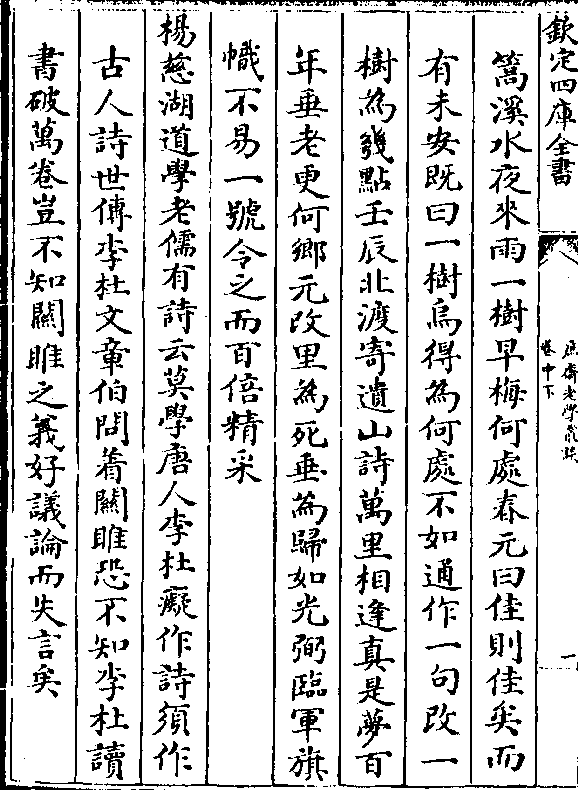 欽定四庫全書
庶齋老學叢談
卷中下
一
篙溪水夜來雨一樹早梅何處春元曰佳則佳矣而
有未安既曰一樹烏得為何處不如通作一句改一
樹為幾點壬辰北渡寄遺山詩萬里相逢真是夢百
年垂老更何鄉元改里為死垂為歸如光弼臨軍旗
幟不易一號令之而百倍精采
楊慈湖道學老儒有詩云莫學唐人李杜癡作詩須作
古人詩世傳李杜文章伯問着關雎恐不知李杜讀
書破萬卷豈不知關雎之義好議論而失言矣